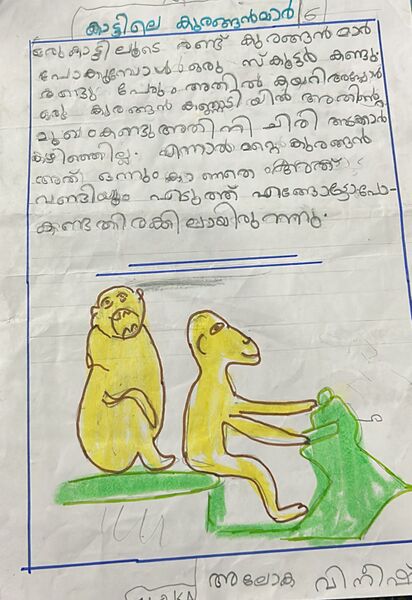 കാട്ടിലെ കുരങ്ങൻമാർ 6
ഒരുകാട്ടിലൂടെ രണ്ട് കുരങ്ങൻമാർ
പോകുമ്പോൾ ഒരു സ്കൂട്ടർ കണ്ടു.
രണ്ടു പേരും അതിൽ കയറി അപ്പോൾ
ഒരു കുരങ്ങൻ കണ്ണാടിയിൽ അതിന്റെ
മുഖംകണ്ടു അതിന് ചിരി അടക്കാൻ
കഴിഞ്ഞില്ല. എന്നാൽ മറ്റെ കുരങ്ങൻ
അത് ഒന്നും കാണാതെ
വണ്ടിയും എടുത്ത് എങ്ങോട്ടോപോ-
കുന്നതിരക്കിലായിരുന്നു.
അലോക വിനീഷ്